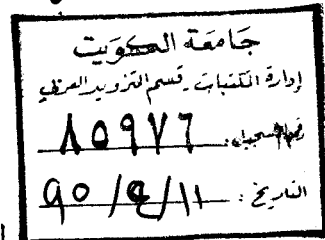 جَامعَة الكوَيت
إدارة المكتبات - قسم التزويد العربي
رقم التسجيل: ٨٥٩٧٦
التاريخ: ١١/٤/٩٥